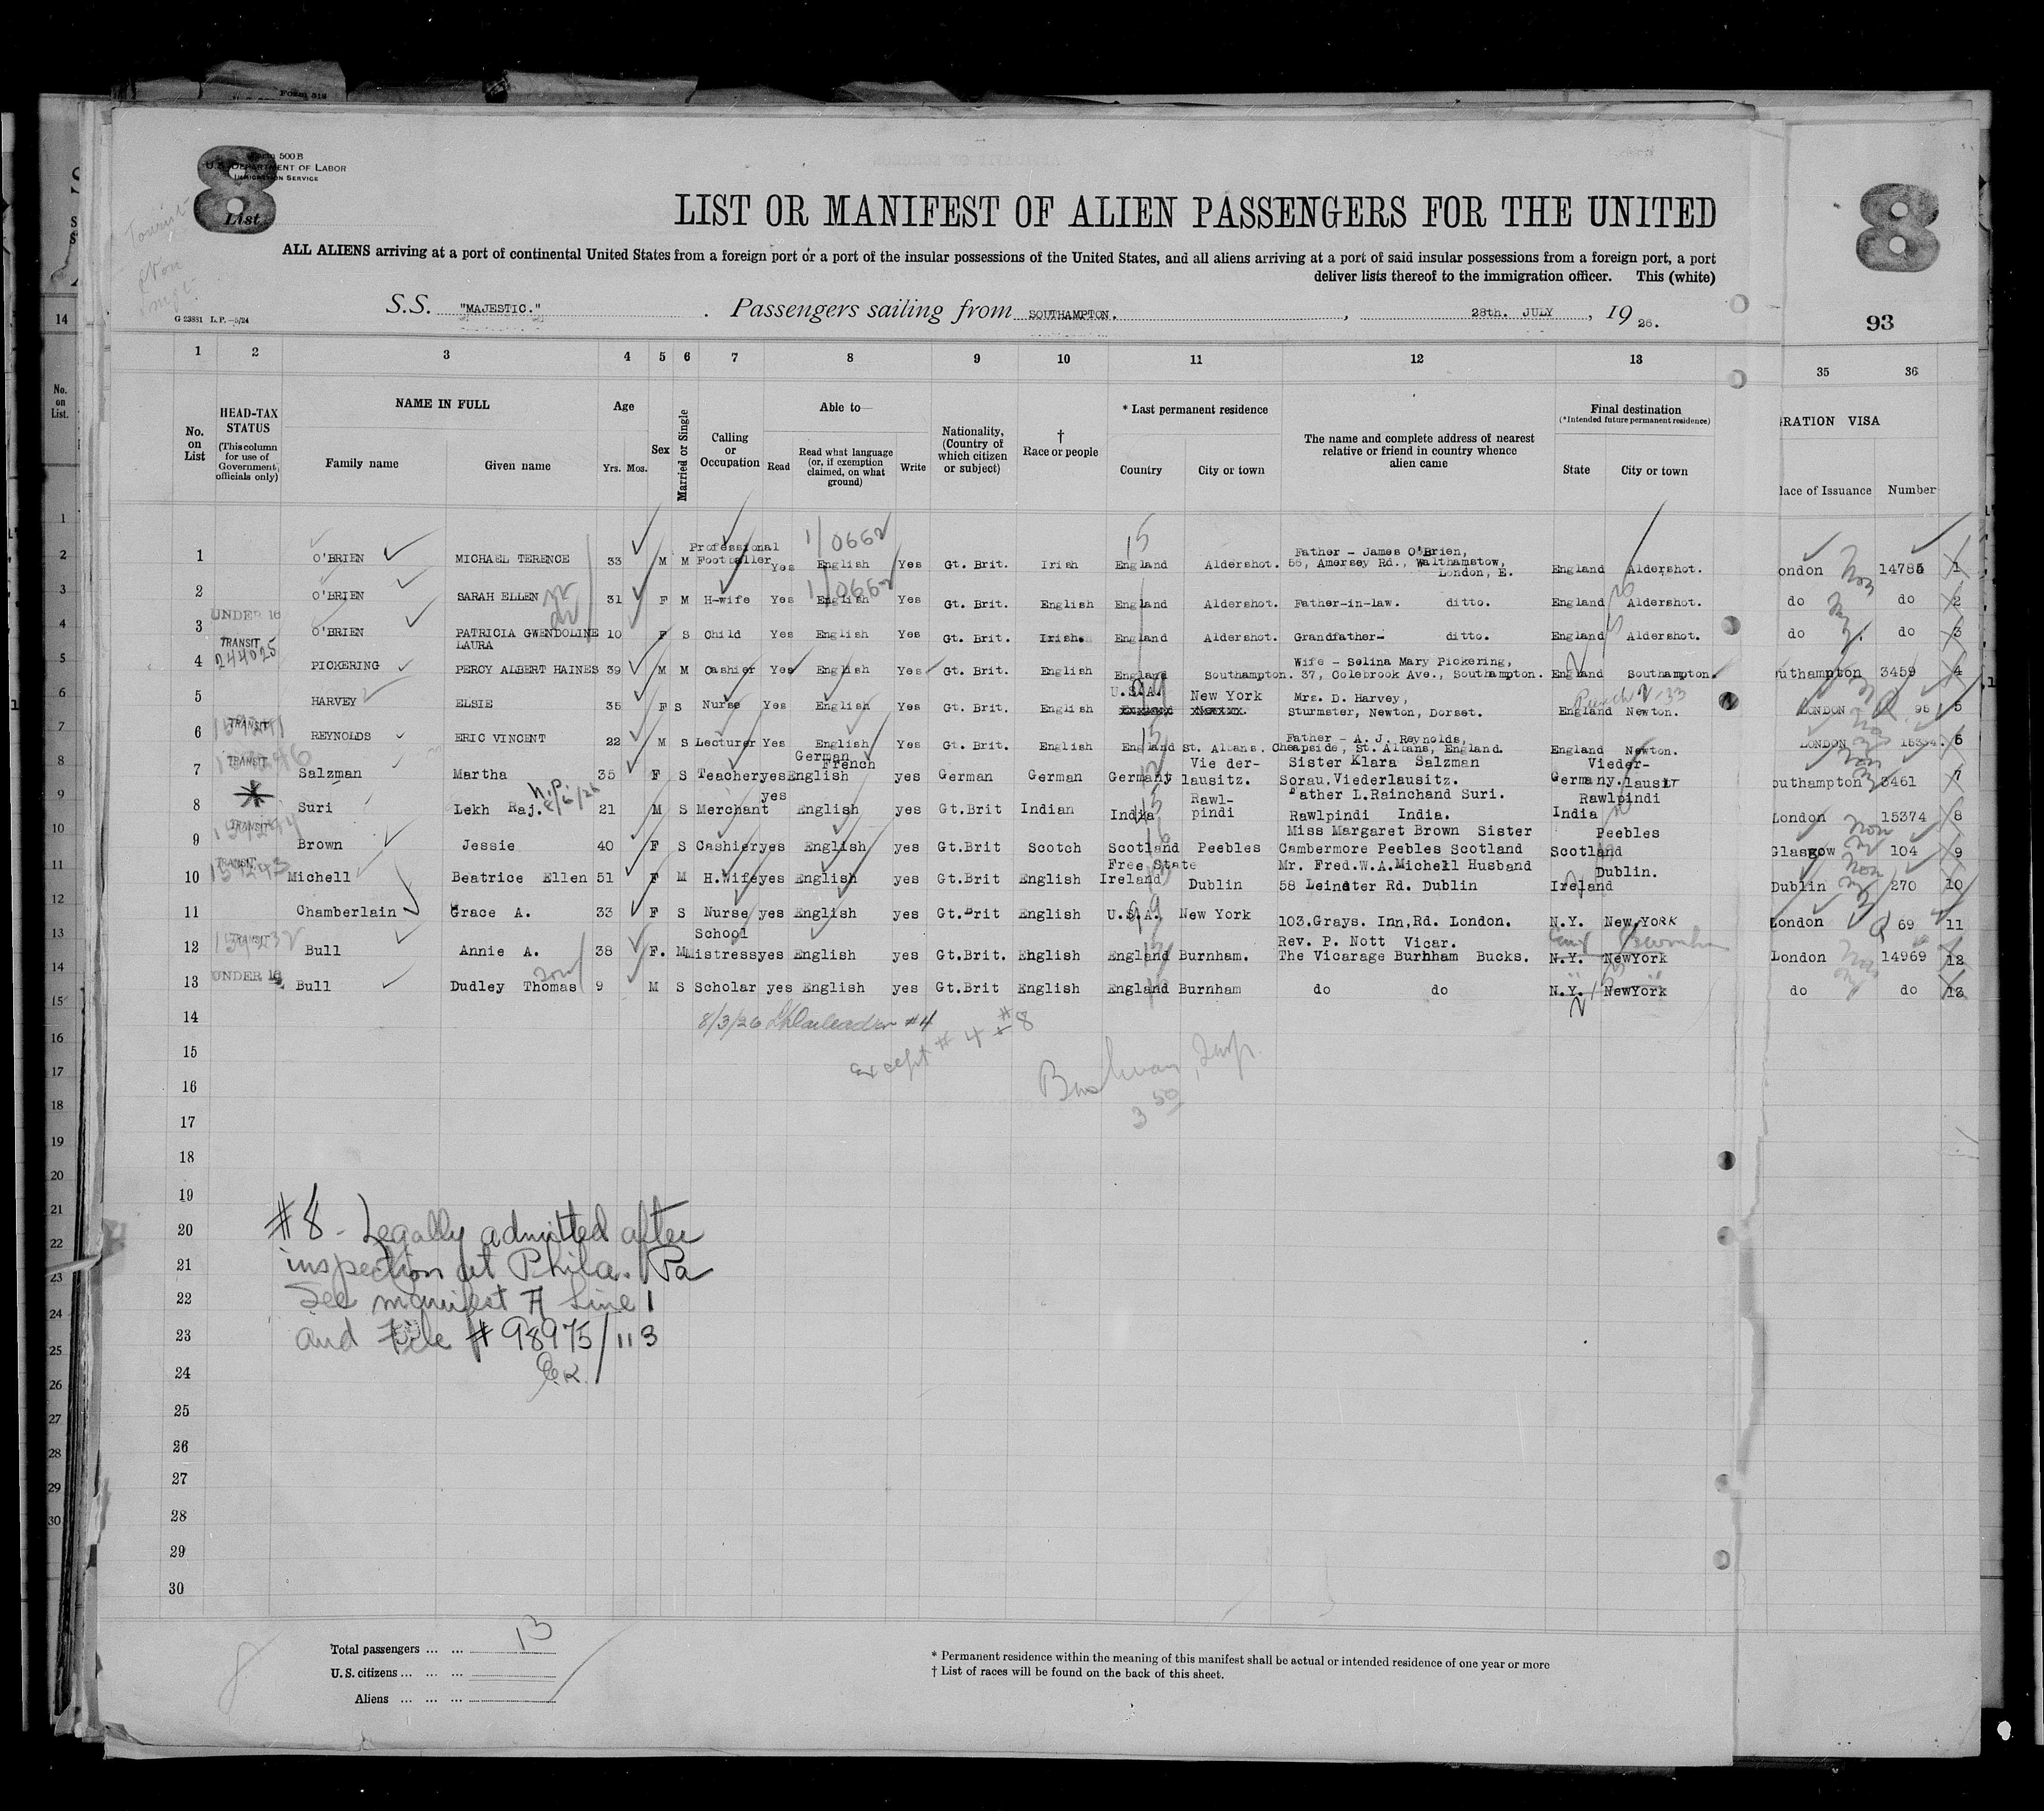 Form 500 B
U.S. DEPARTMENT OF LABOR
IMMIGRATION SERVICE
8
List
8
LIST OR MANIFEST OF ALIEN PASSENGERS FOR THE UNITED
ALL ALIENS arriving at a port of continental United States from a foreign port or a port of the insular possessions of the United States, and all aliens arriving at a port of said insular possessions from a foreign port, a port
deliver lists thereof to the immigration officer. This (white)
G 23831 L.P.—5/24
S.S. "MAJESTIC." . Passengers sailing from SOUTHAMPTON. , 28th. JULY , 19 26.
93
1 2 3 4 5 6 7 8 9 10 11 12 13 35 36
No. on List
HEAD-TAX STATUS (This column for use of Government officials only)
NAME IN FULL
Family name Given name
Age
Yrs. Mos.
Sex
Married or Single
Calling or Occupation
Able to—
Read
Read what language (or, if exemption claimed, on what ground)
Write
Nationality, (Country of which citizen or subject)
† Race or people
* Last permanent residence
Country City or town
The name and complete address of nearest relative or friend in country whence alien came
Final destination
(*Intended future permanent residence)
State City or town
RATION VISA
lace of Issuance Number
1 O'BRIEN MICHAEL TERENCE 33 M M Professional Footballer Yes English Yes Gt. Brit. Irish England Aldershot. Father - James O'Brien, 56, Amersey Rd., Walthamstow, London, E. England Aldershot. ondon 14785 1
2 O'BRIEN SARAH ELLEN 31 F M H-wife Yes English Yes Gt. Brit. English England Aldershot. Father-in-law. ditto. England Aldershot. do do 2
UNDER 16
3 O'BRIEN PATRICIA GWENDOLINE LAURA 10 F S Child Yes English Yes Gt. Brit. Irish. England Aldershot. Grandfather- ditto. England Aldershot. do do 3
TRANSIT
244025
4 PICKERING PERCY ALBERT HAINES 39 M M Cashier Yes English Yes Gt. Brit. English England Southampton. Wife - Selina Mary Pickering, 37, Colebrook Ave., Southampton. England Southampton. uthampton 3459 4
5 HARVEY ELSIE 35 F S Nurse Yes English Yes Gt. Brit. English U.S.A. New York Mrs. D. Harvey, Sturmster, Newton, Dorset. England Newton. LONDON 96 5
TRANSIT
6 REYNOLDS ERIC VINCENT 22 M S Lecturer Yes English Yes Gt. Brit. English England St. Albans. Father - A. J. Reynolds, Cheapside, St. Albans, England. England Newton. LONDON 15334. 6
TRANSIT
7 Salzman Martha 35 F S Teacher yes German French English yes German German Germany Vie der- lausitz. Sister Klara Salzman Sorau. Viederlausitz. Germany. Vieder- lausir outhampton 3461 7
8 Suri Lekh Raj. 21 M S Merchant yes English yes Gt.Brit Indian India Rawl- pindi Father L.Rainchand Suri. Rawlpindi India. India Rawlpindi London 15374 8
TRANSIT
9 Brown Jessie 40 F S Cashier yes English yes Gt.Brit Scotch Scotland Peebles Miss Margaret Brown Sister Cambermore Peebles Scotland Scotland Peebles Glasgow 104 9
TRANSIT
159243
10 Michell Beatrice Ellen 51 F M H.Wife yes English yes Gt.Brit English Free State Ireland Dublin Mr. Fred.W.A.Michell Husband 58 Leinster Rd. Dublin Ireland Dublin. Dublin 270 10
11 Chamberlain Grace A. 33 F S Nurse yes English yes Gt.Brit English U.S.A. New York 103.Grays. Inn,Rd. London. N.Y. New,YORK London 69 11
TRANSIT
12 Bull Annie A. 38 F. M School Mistress yes English yes Gt.Brit. English England Burnham. Rev. P. Nott Vicar. The Vicarage Burnham Bucks. N.Y. NewYork London 14969 12
UNDER 16
13 Bull Dudley Thomas 9 M S Scholar yes English yes Gt.Brit English England Burnham do do N.Y. NewYork do do 13
14 8/3/26 #4
except # 4 + #8
15
16
17
18
19
20
21
22
23
24
25
26
27
28
29
30
3 50
#8 - Legally admitted after
inspection at Phila. Pa
See manifest A Line 1
and File # 98975/113
Total passengers ... ... 13
U.S. citizens ... ... ...
Aliens ... ... ...
* Permanent residence within the meaning of this manifest shall be actual or intended residence of one year or more
† List of races will be found on the back of this sheet.